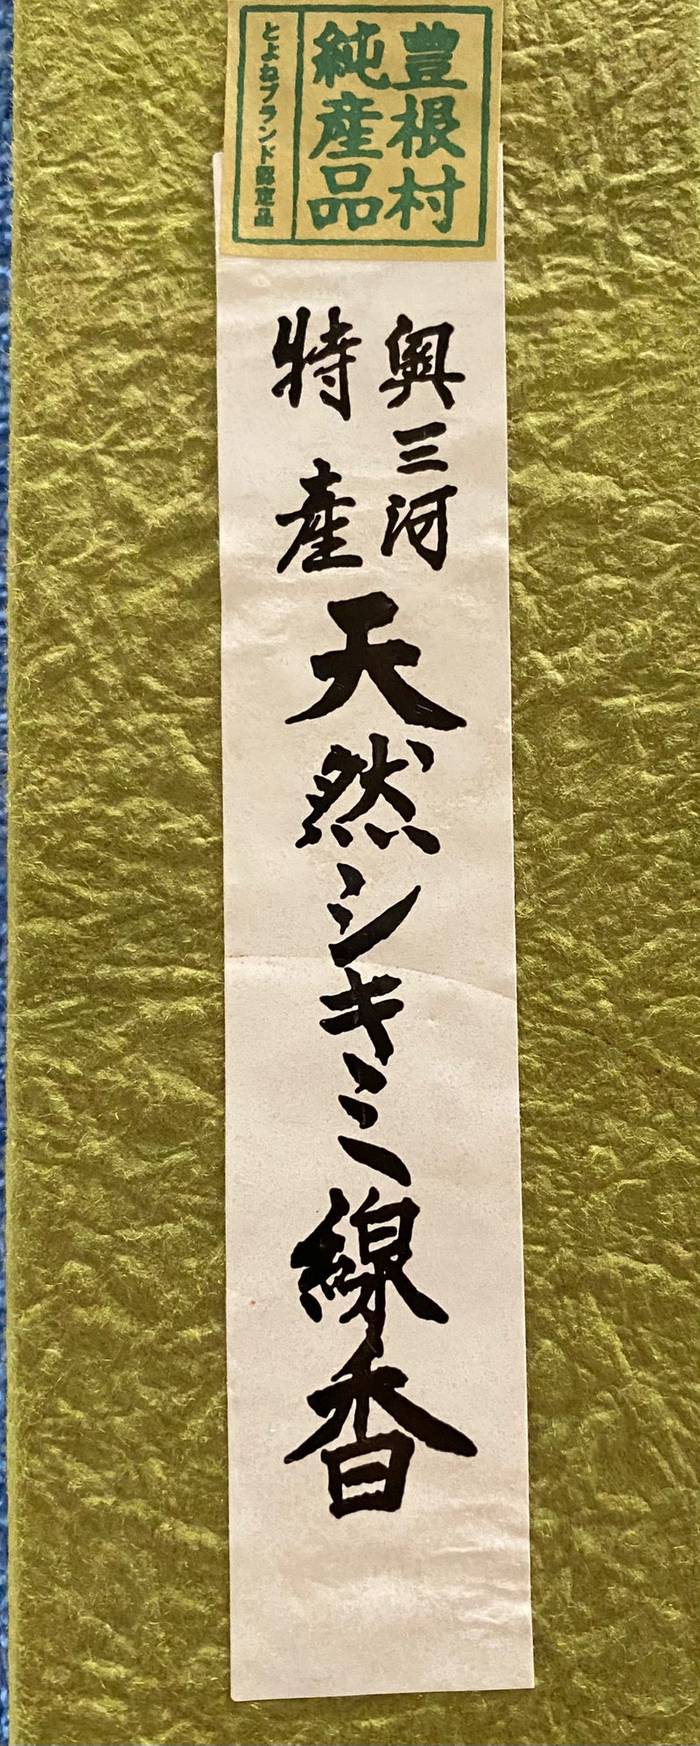 豊根村
純産品
とよねブランド認定品
奥三河
特産
天然シキミ線香